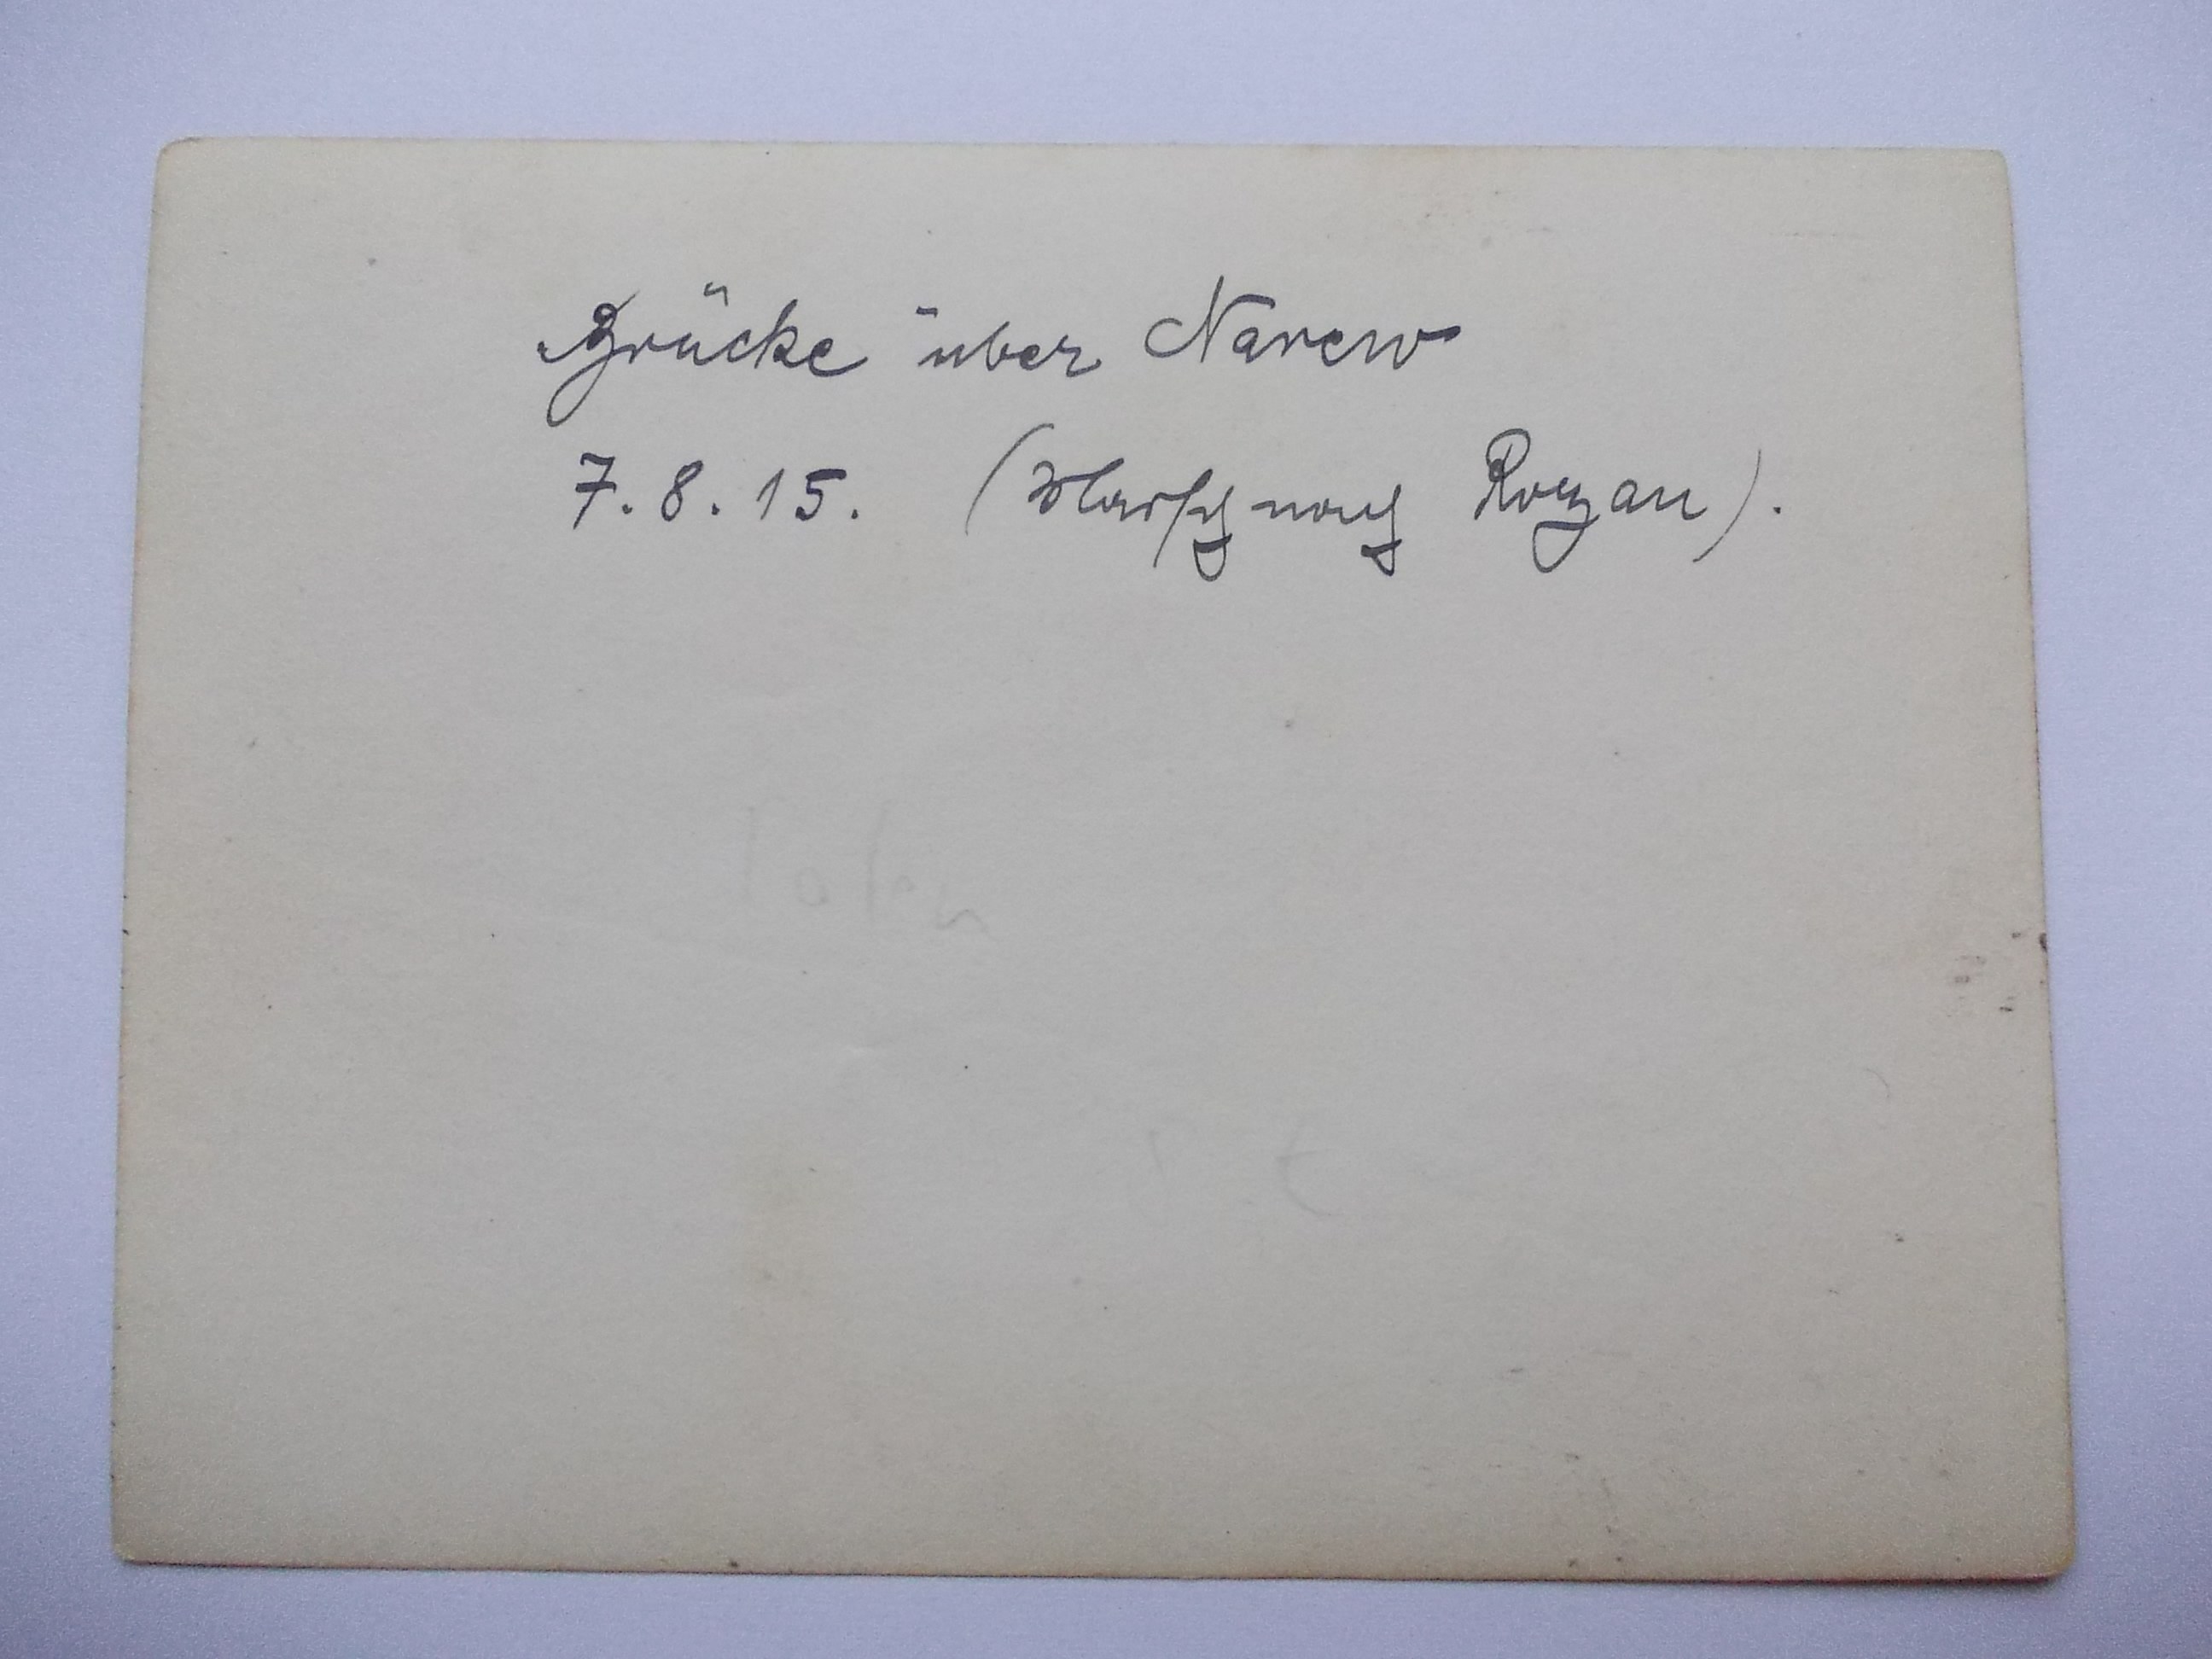 Brücke über Narew
7.8.15. (Marsch nach Rozan).